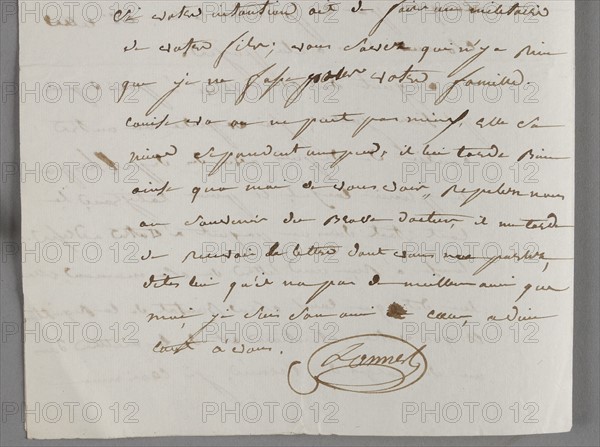 Si votre intention est de faire un militaire
de votre fils, vous savez qui n'y a Rien
que je ne fasse pour votre famille.
Louise va on ne peut pas mieux, elle sa
cependent un peu, il lui tarde Bien
ainsi qua moi de vous voir, Rapeles nous
au souvenir du Brave docteur, il me tarde
de Recevoir la lettre dont vous me parlez,
dites lui qu'il na pas de meilleur ami que
moi, je suis son ami de cœur, adieu
tout à vous.
Lannes